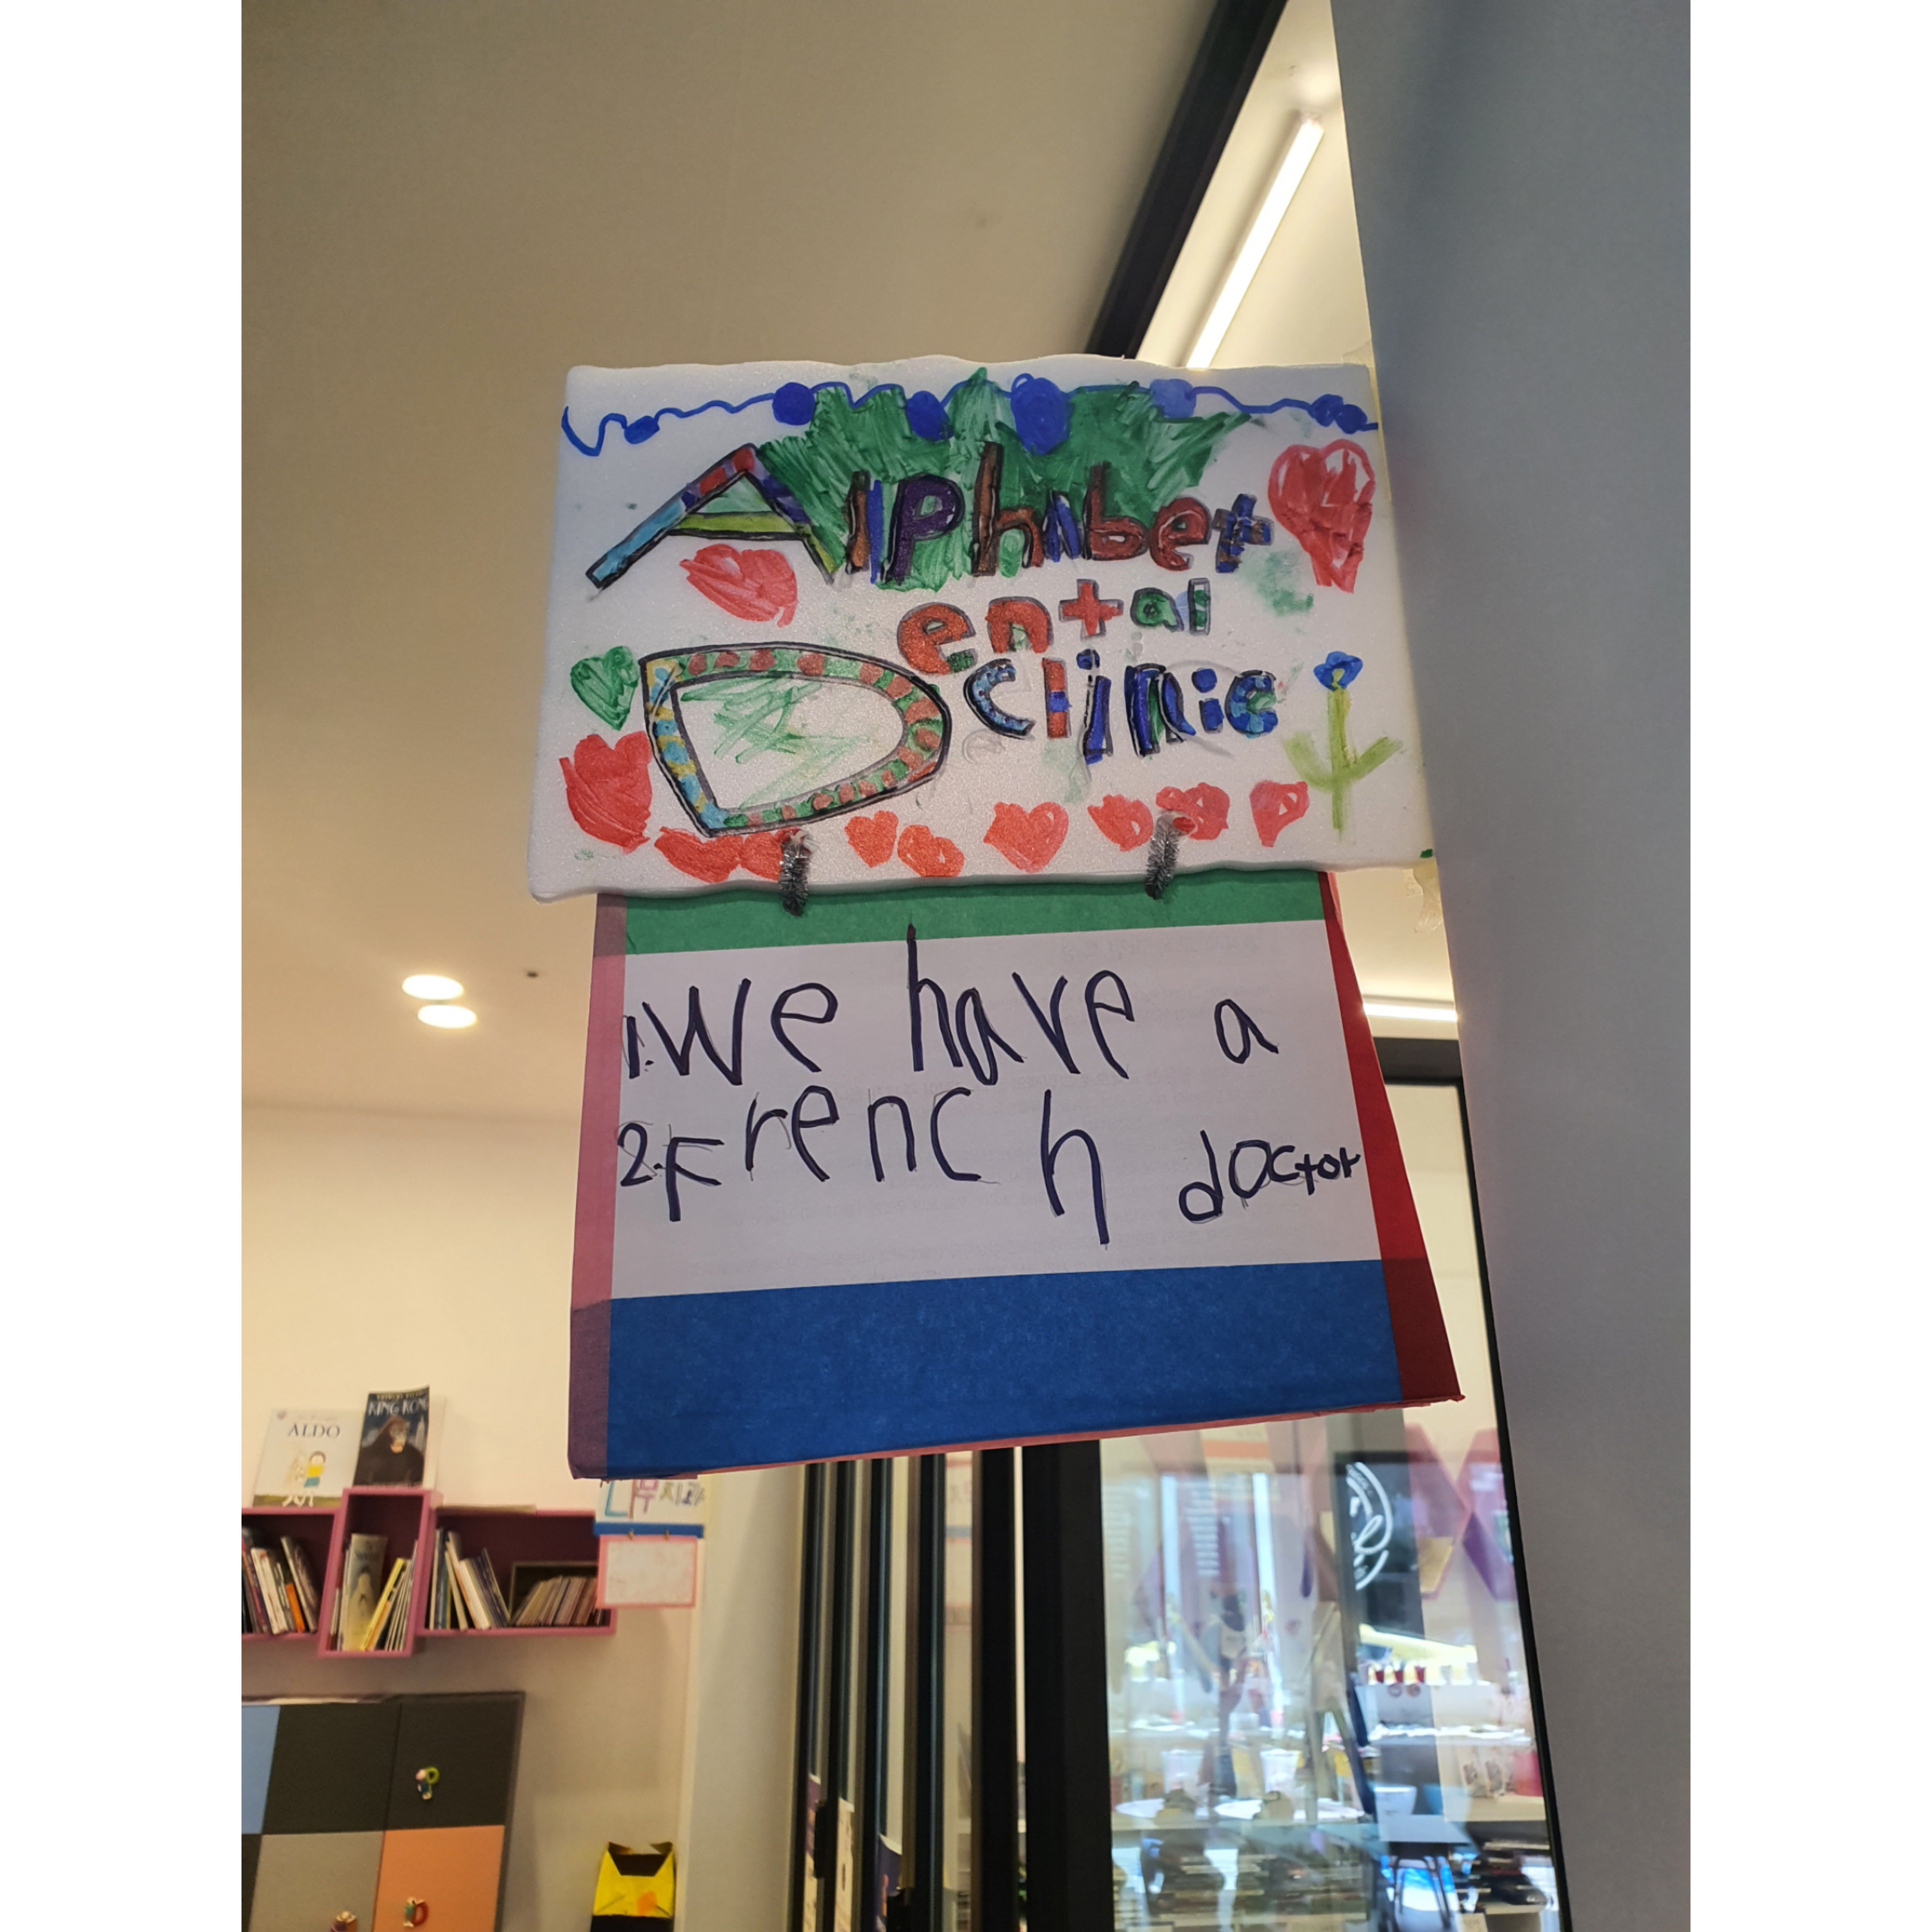 Alphabet
Dental
clinic
1. We have a
2. French doctor
ALDO
KING KONG